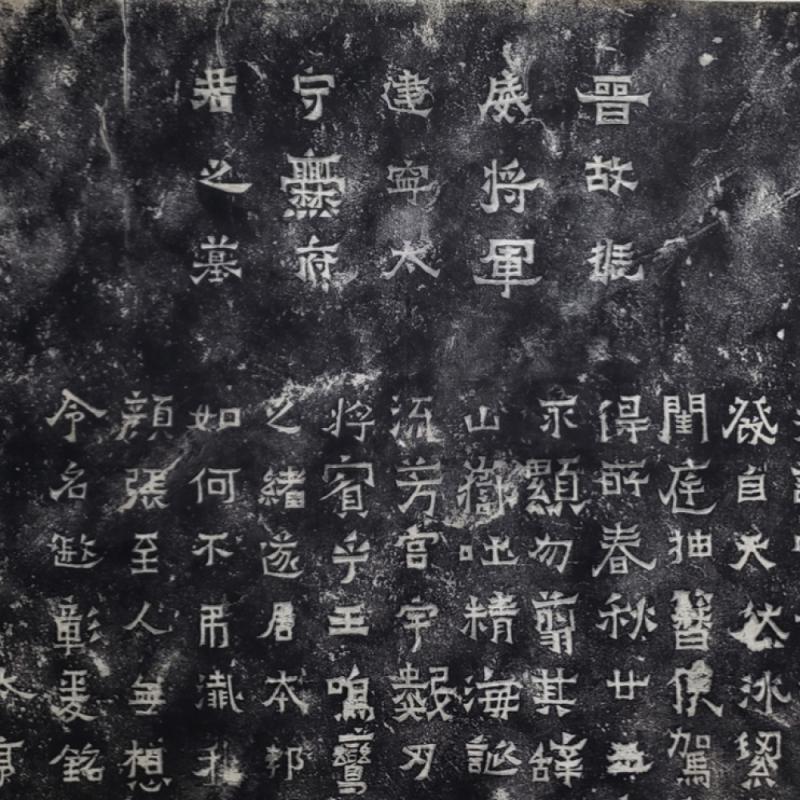 晉故振
威將軍
建寧太
守爨府
君之墓
發自天然冰絜
閨庭抽簪俟駕
得所春秋廿五
永顯勿翦其辭
山嶽吐精海誕
流芳宮宇數刃
將賓乎王鳴鸞
之緒遂居本邦
如何不弔殲我
顏張至人無想
令名遐彰爰銘